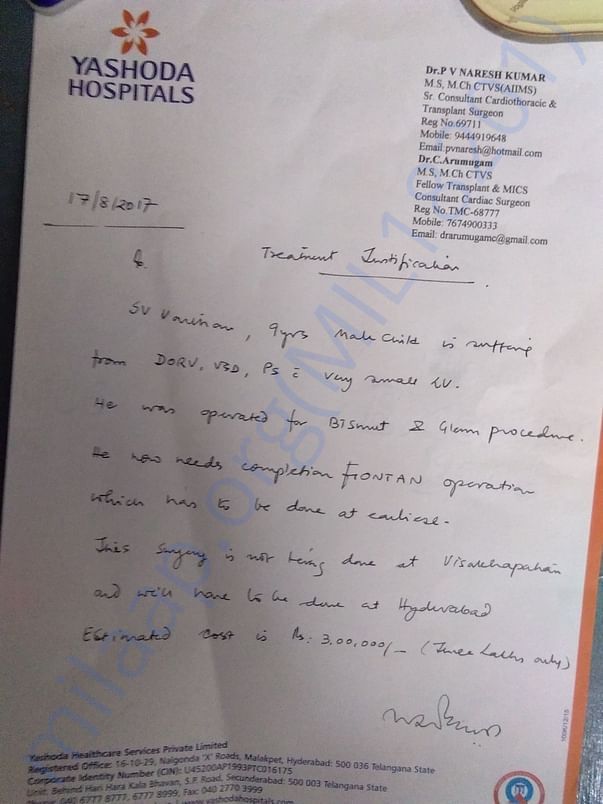 YASHODA
HOSPITALS
Dr.P V NARESH KUMAR
M.S, M.Ch CTVS(AIIMS)
Sr. Consultant Cardiothoracic &
Transplant Surgeon
Reg No.69711
Mobile: 9444919648
Email:pvnaresh@hotmail.com
Dr.C.Arumugam
M.S, M.Ch CTVS
Fellow Transplant & MICS
Consultant Cardiac Surgeon
Reg No.TMC-68777
Mobile: 7674900333
Email: drarumugamc@gmail.com
17/8/2017
Treatment Justification
SV , 9yrs Male Child is suffering
from DORV, VSD, PS c̄ very small LV.
He was operated for & Glenn procedure.
He now needs completion FONTAN operation
which has to be done at earliest.
This surgery is not being done at Visakhapatnam
and will have to be done at Hyderabad
Estimated cost is Rs: 3,00,000/- (Three Lakhs only)
Yashoda Healthcare Services Private Limited
Registered Office: 16-10-29, Nalgonda 'X' Roads, Malakpet, Hyderabad: 500 036 Telangana State
Corporate Identity Number (CIN): U45200AP1993PTC016175
Unit: Behind Hari Hara Kala Bhavan, S.P. Road, Secunderabad: 500 003 Telangana State
Phone: 040 6777 8777, 6777 8999, Fax: 040 2770 3999
www.yashodahospitals.com
milaap.org